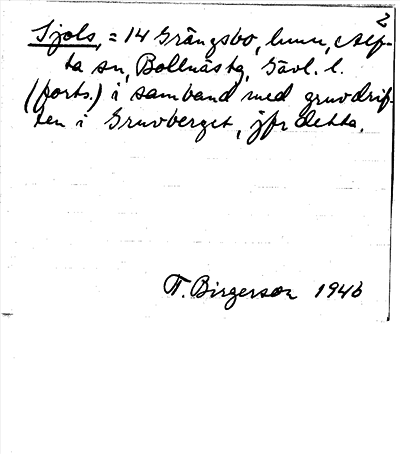 2
Sjols, = 14 Grängsbo, hmn, Alf-
ta sn, Bollnäs tg, Gävl. l.
(forts.) i samband med gruvdrif-
ten i Gruvberget, jfr detta.
T. Birgerson 1946